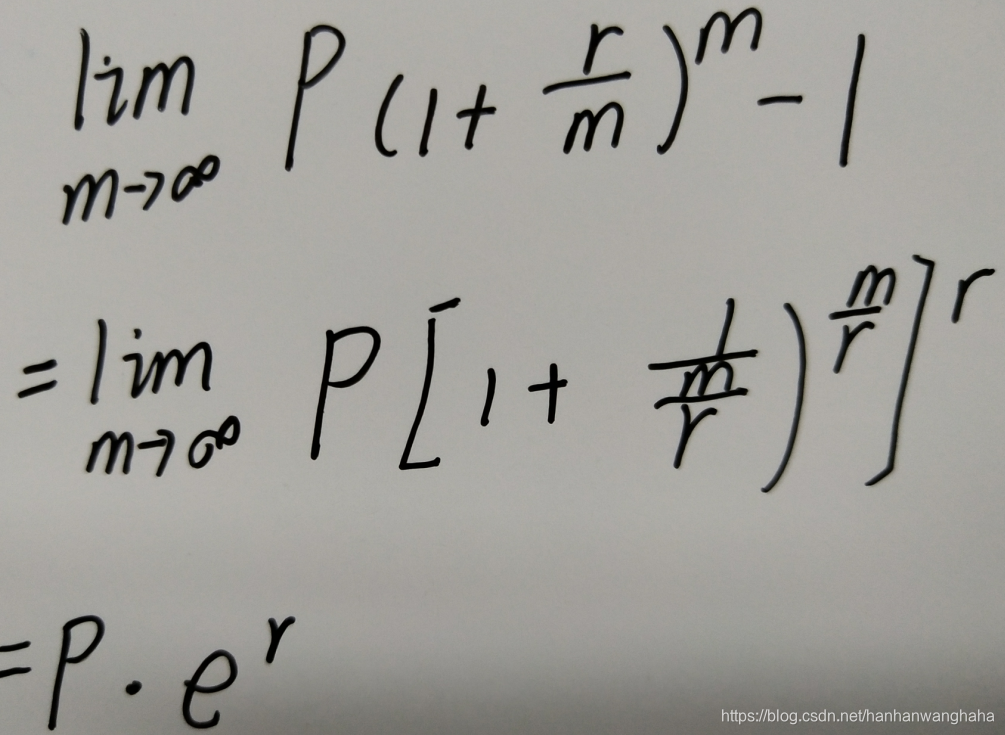 lim m→∞ P(1+r/m)^m-1
=lim m→∞ P[1+1/(m/r))^(m/r)]^r
=P·e^r
https://blog.csdn.net/hanhanwanghaha